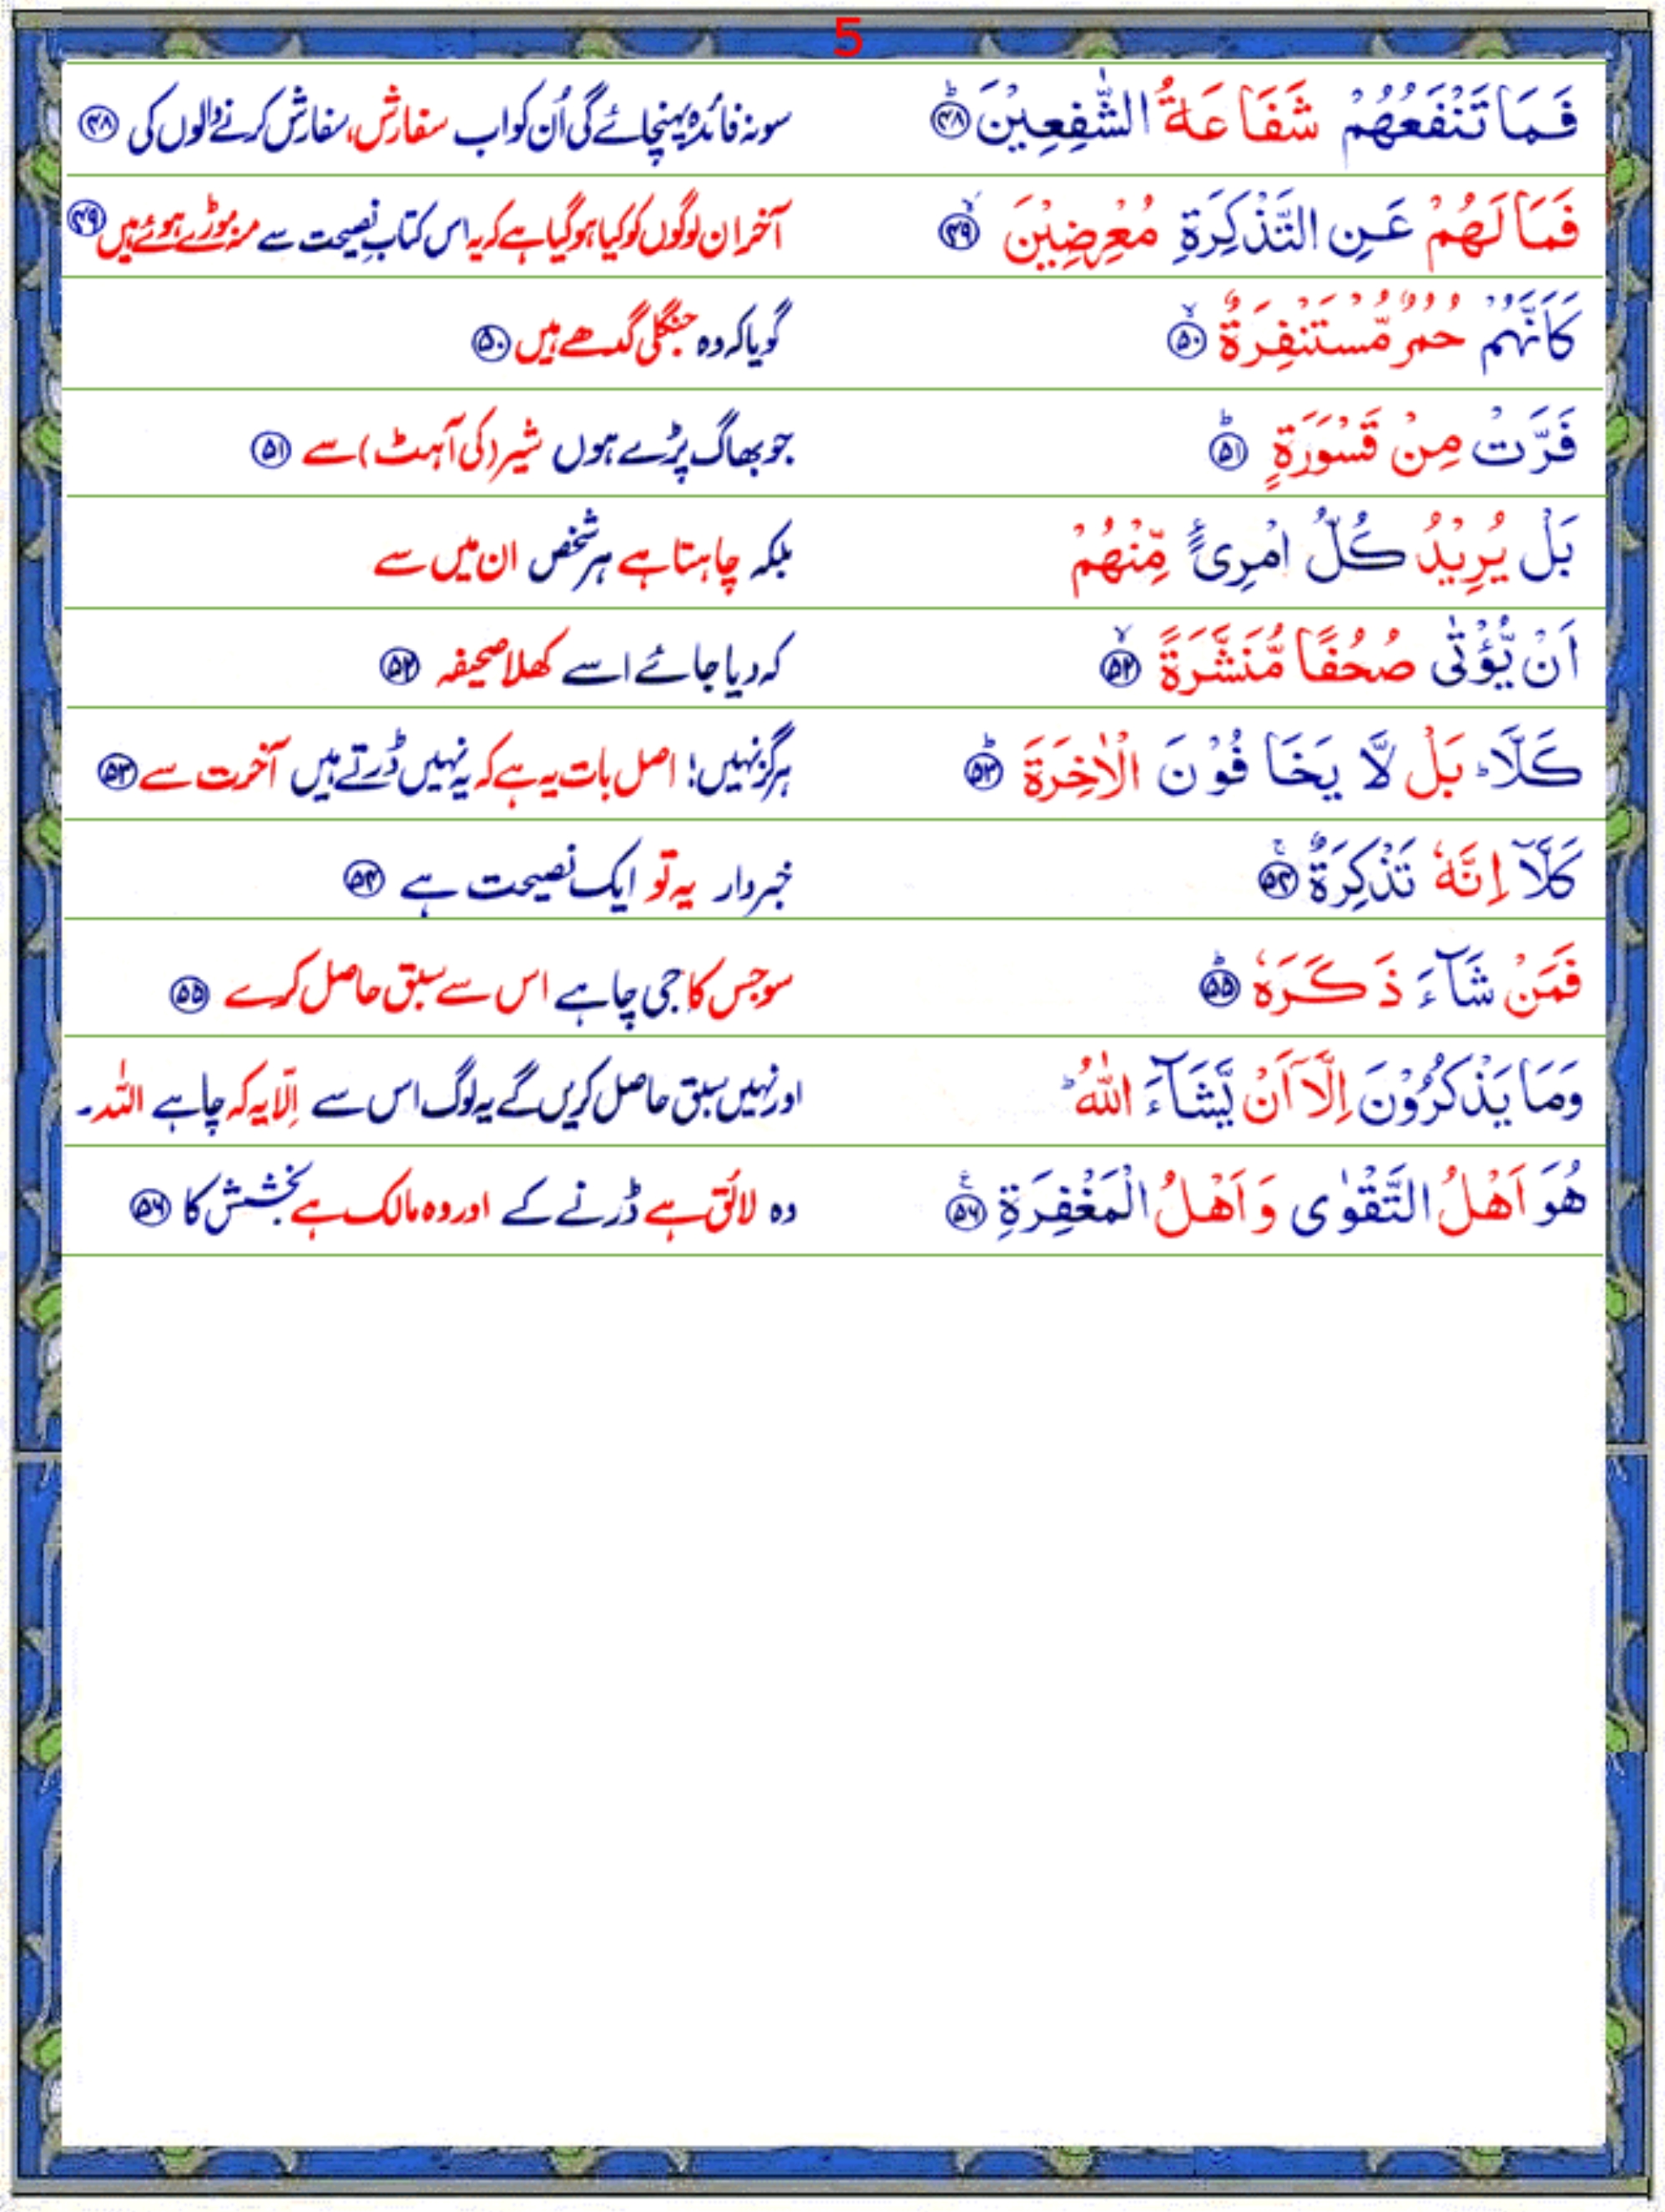 5
فَمَا تَنْفَعُهُمْ شَفَاعَةُ الشّٰفِعِيْنَ ؕ ﴿۴۸﴾ سو نہ فائدہ پہنچائے گی اُن کو اب سفارش، سفارش کرنے والوں کی ﴿۴۸﴾
فَمَا لَهُمْ عَنِ التَّذْكِرَةِ مُعْرِضِيْنَ ۙ ﴿۴۹﴾ آخر ان لوگوں کو کیا ہوگیا ہے کہ یہ اس کتابِ نصیحت سے منہ موڑے ہوئے ہیں ﴿۴۹﴾
كَاَنَّهُمْ حُمُرٌ مُّسْتَنْفِرَةٌ ۙ ﴿۵۰﴾ گویا کہ وہ جنگلی گدھے ہیں ﴿۵۰﴾
فَرَّتْ مِنْ قَسْوَرَةٍ ؕ ﴿۵۱﴾ جو بھاگ پڑے ہوں شیر (کی آہٹ) سے ﴿۵۱﴾
بَلْ يُرِيْدُ كُلُّ امْرِیًٔ مِّنْهُمْ بلکہ چاہتا ہے ہر شخص ان میں سے
اَنْ يُّؤْتٰى صُحُفًا مُّنَشَّرَةً ۙ ﴿۵۲﴾ کہ دیا جائے اسے کھلا صحیفہ ﴿۵۲﴾
كَلَّا ؕ بَلْ لَّا يَخَافُوْنَ الْاٰخِرَةَ ؕ ﴿۵۳﴾ ہرگز نہیں! اصل بات یہ ہے کہ یہ نہیں ڈرتے ہیں آخرت سے ﴿۵۳﴾
كَلَّاۤ اِنَّهٗ تَذْكِرَةٌ ۚ ﴿۵۴﴾ خبردار یہ تو ایک نصیحت ہے ﴿۵۴﴾
فَمَنْ شَآءَ ذَكَرَهٗ ؕ ﴿۵۵﴾ سو جس کا جی چاہے اس سے سبق حاصل کرے ﴿۵۵﴾
وَمَا يَذْكُرُوْنَ اِلَّاۤ اَنْ يَّشَآءَ اللّٰهُ ؕ اور نہیں سبق حاصل کریں گے یہ لوگ اس سے اِلّا یہ کہ چاہے اللہ۔
هُوَ اَهْلُ التَّقْوٰى وَاَهْلُ الْمَغْفِرَةِ ۧ ﴿۵۶﴾ وہ لائق ہے ڈرنے کے اور وہ مالک ہے بخشش کا ﴿۵۶﴾